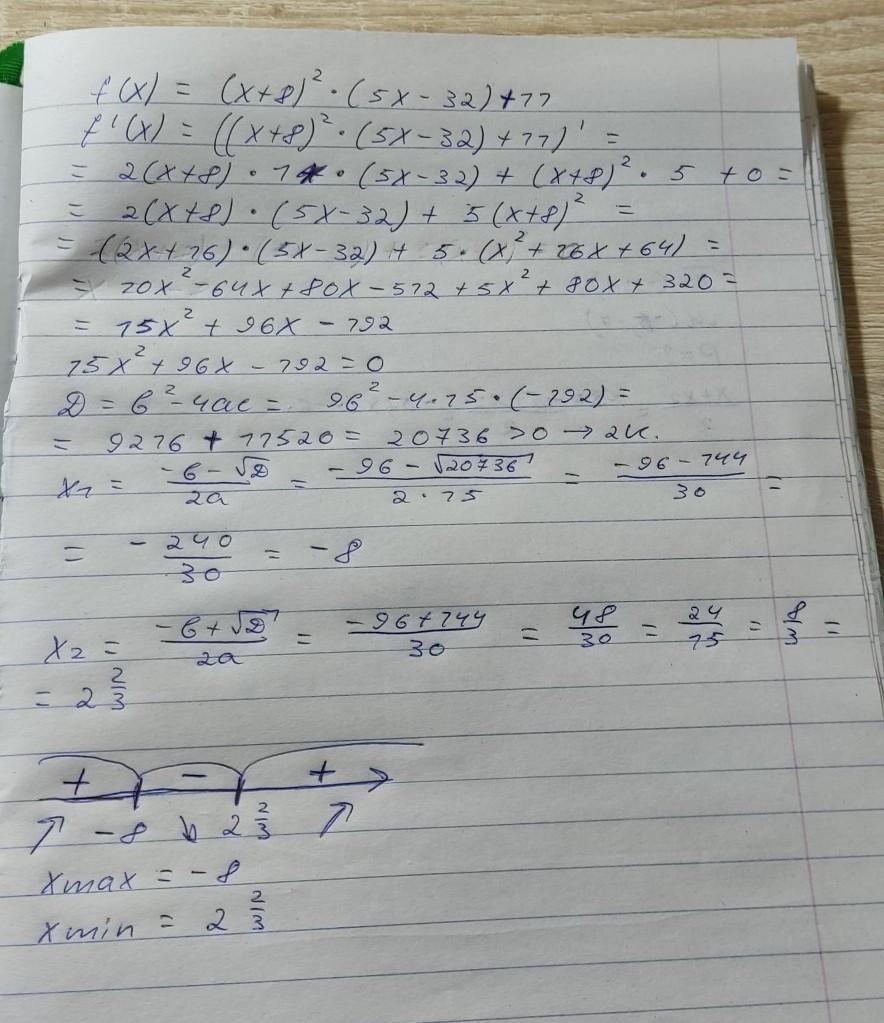 f(x) = (x+8)² · (5x - 32) + 11
f'(x) = ((x+8)² · (5x - 32) + 11)' =
= 2(x+8) · 1 · (5x - 32) + (x+8)² · 5 + 0 =
= 2(x+8) · (5x - 32) + 5(x+8)² =
= (2x + 16) · (5x - 32) + 5 · (x² + 16x + 64) =
= 10x² - 64x + 80x - 512 + 5x² + 80x + 320 =
= 15x² + 96x - 192
15x² + 96x - 192 = 0
D = b² - 4ac = 96² - 4 · 15 · (-192) =
= 9216 + 11520 = 20736 > 0 → 2к.
x₁ = (-b - √D)/2a = (-96 - √20736)/(2 · 15) = (-96 - 144)/30 =
= - 240/30 = -8
x₂ = (-b + √D)/2a = (-96 + 144)/30 = 48/30 = 24/15 = 8/3 =
= 2 2/3
+ - +
↗ -8 ↘ 2 2/3 ↗
xmax = -8
xmin = 2 2/3